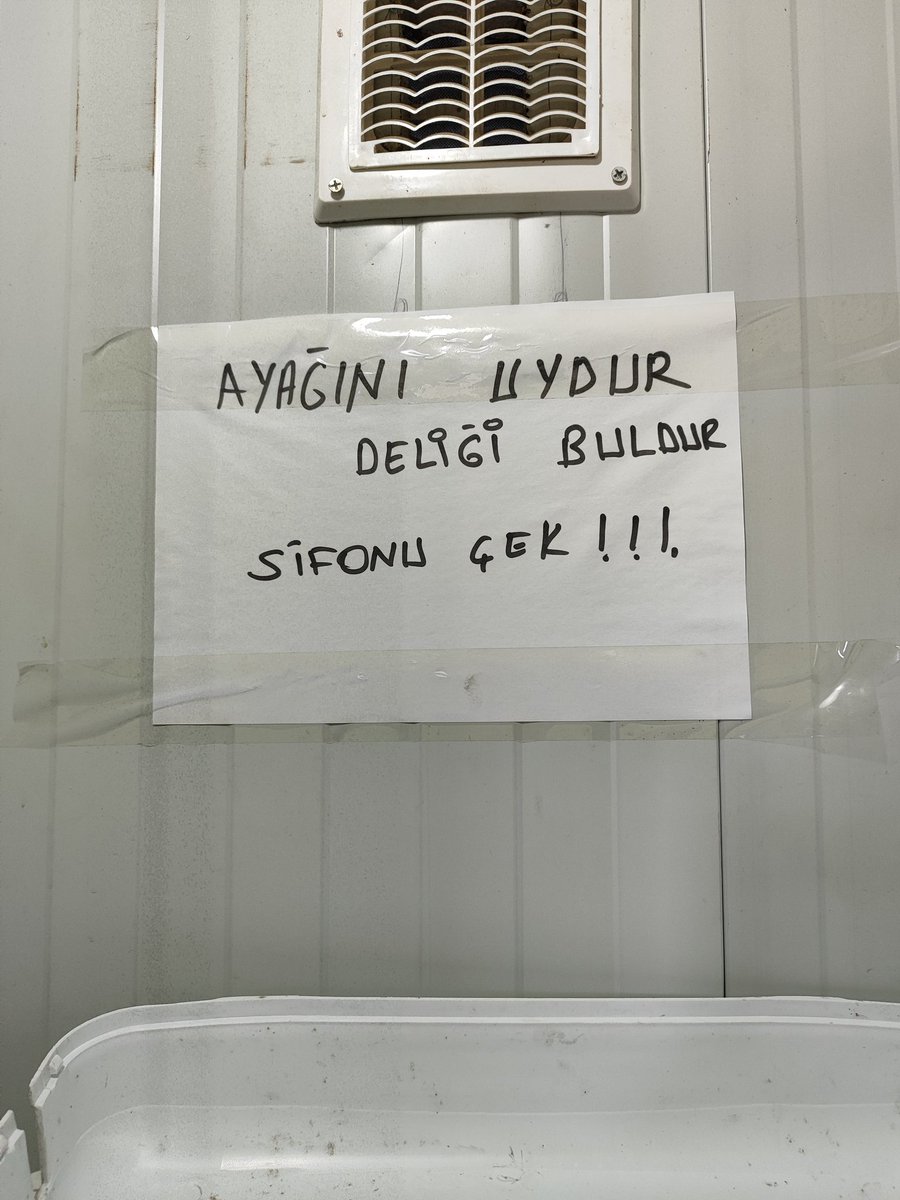 AYAĞINI UYDUR
DELİĞİ BULDUR
SİFONU ÇEK !!!.